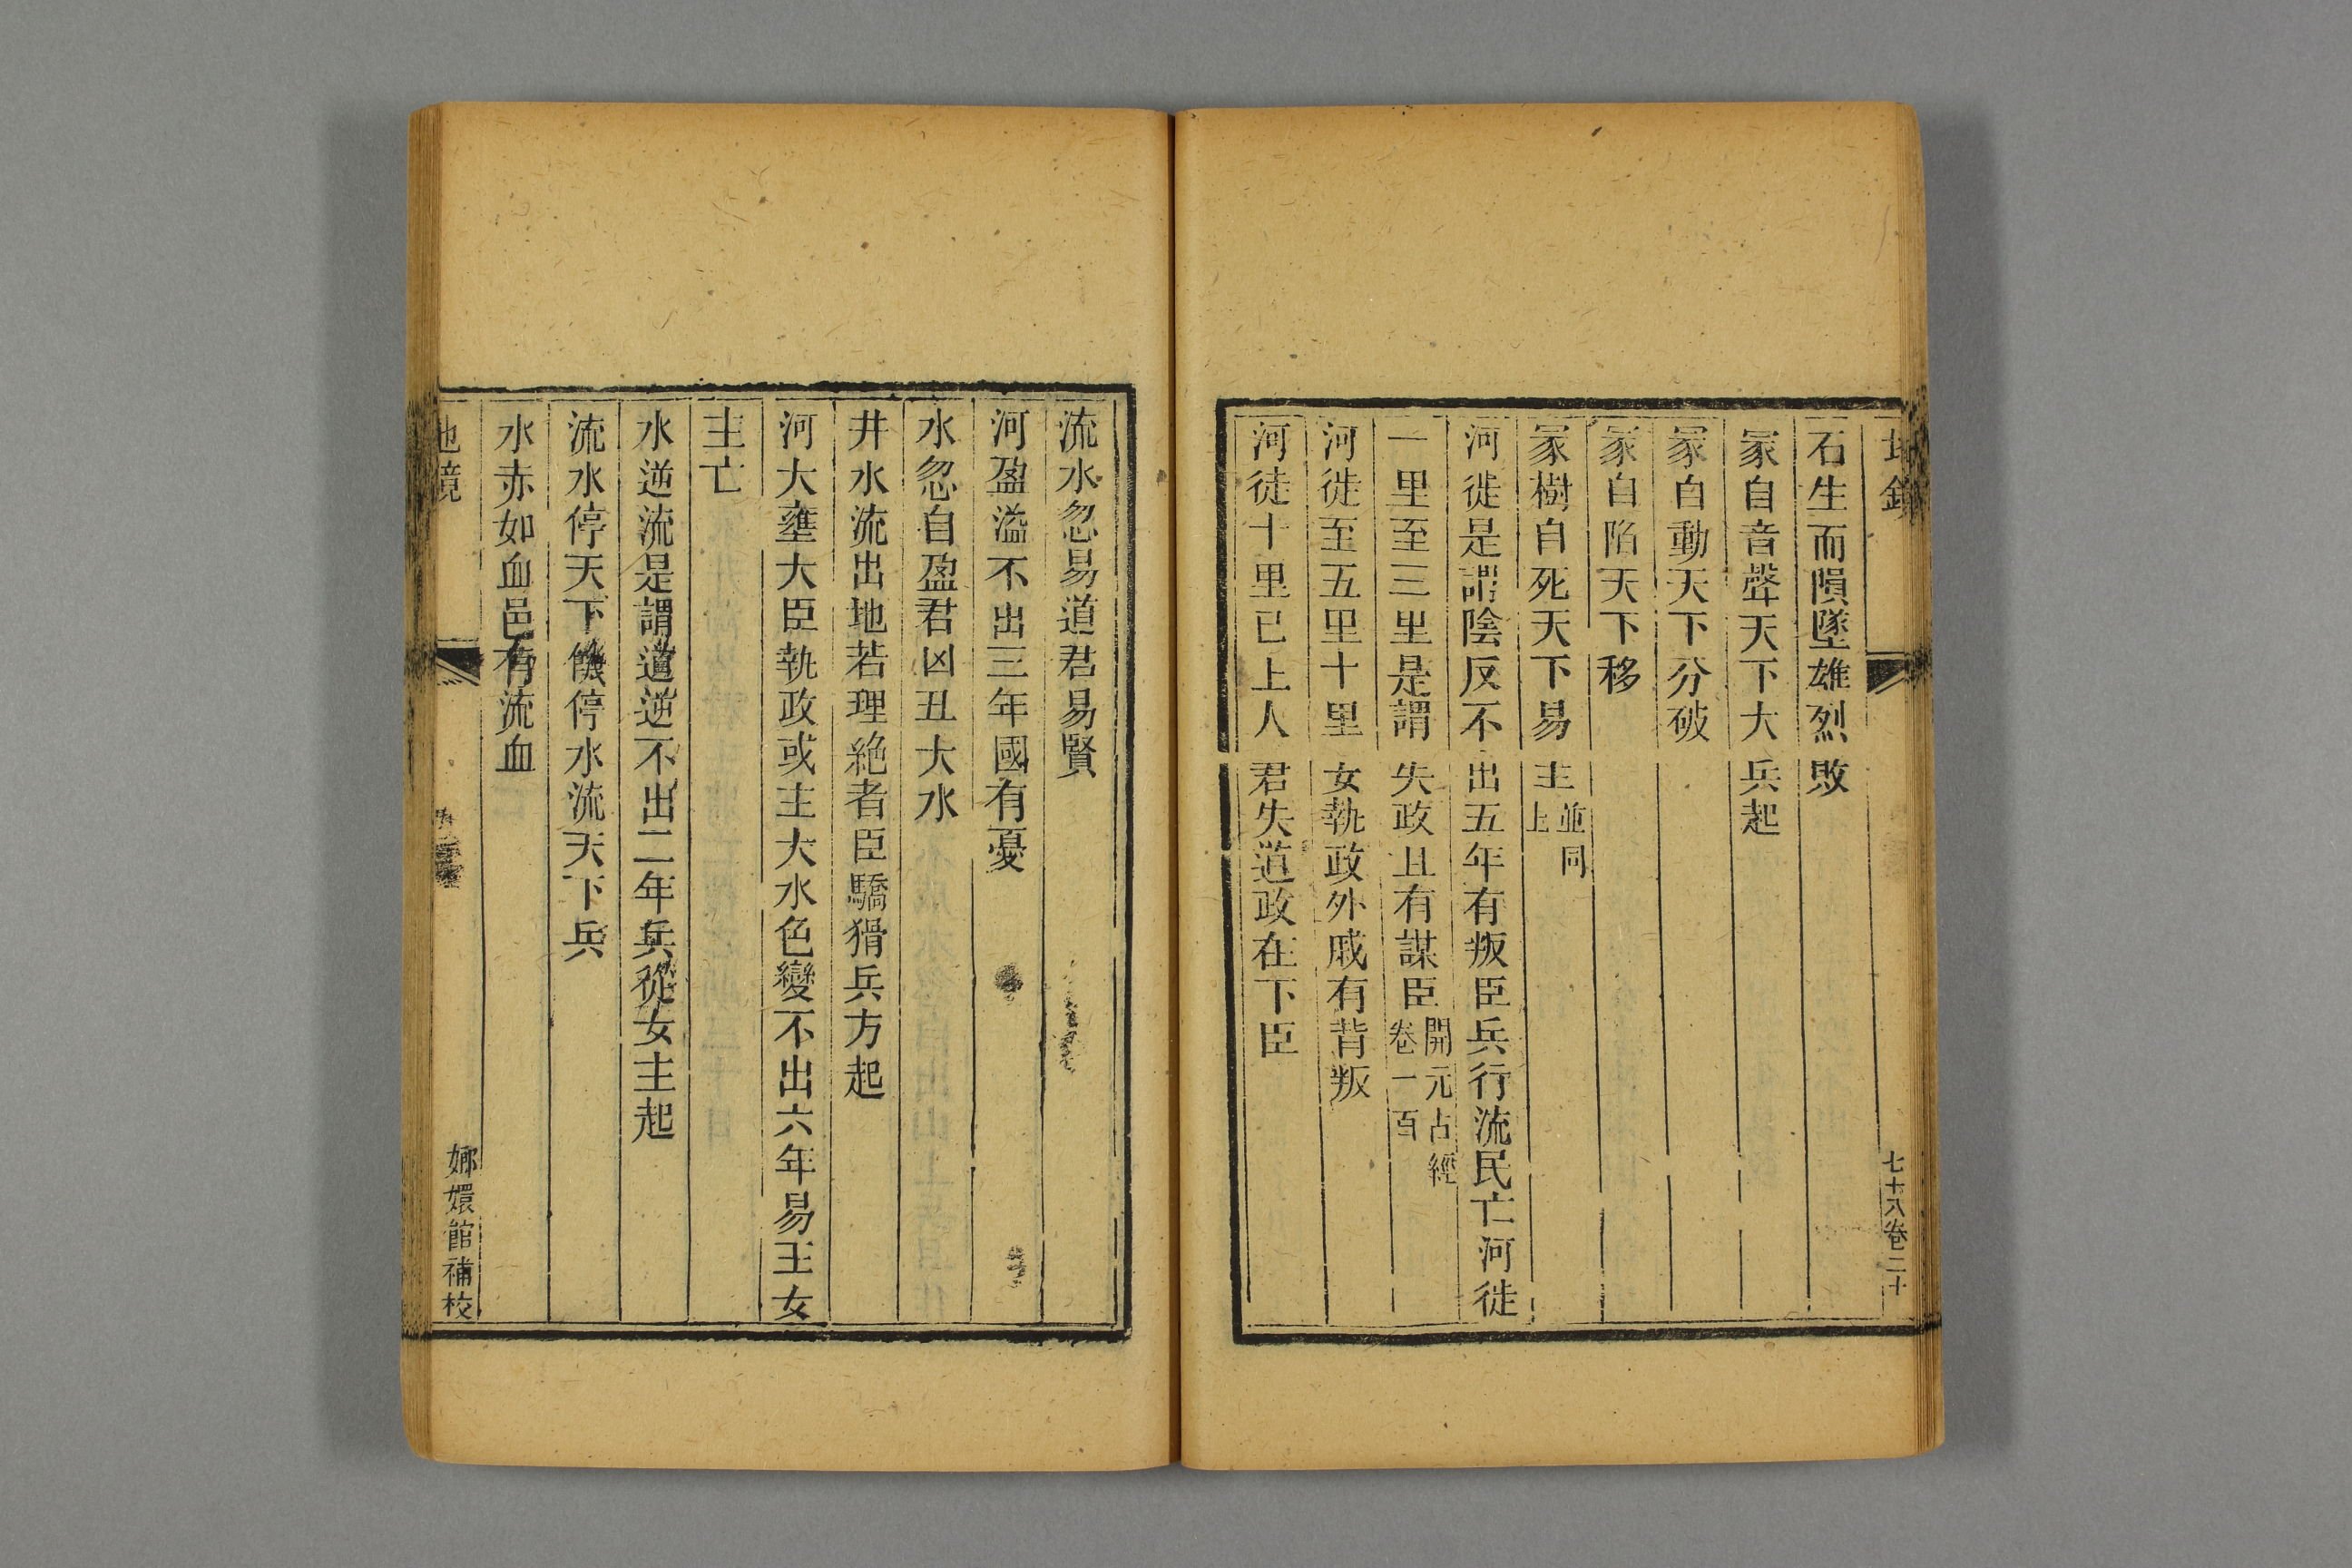 地鏡
七十八卷二十
石生而隕墜雄烈敗
冢自音聲天下大兵起
冢自動天下分破
冢自陷天下移
冢樹自死天下易主並同上
河徙是謂陰反不出五年有叛臣兵行流民亡河徙
一里至三里是謂失政且有謀臣開元占經卷一百
河徙至五里十里女執政外戚有背叛
河徒十里已上人君失道政在下臣
流水忽易道君易賢
河盈溢不出三年國有憂
水忽自盈君凶丑大水
井水流出地若理絶者臣驕猾兵方起
河大壅大臣執政或主大水色變不出六年易王女
主亡
水逆流是謂道逆不出二年兵從女主起
流水停天下饑停水流天下兵
水赤如血邑有流血
地鏡
嫏嬛館補校